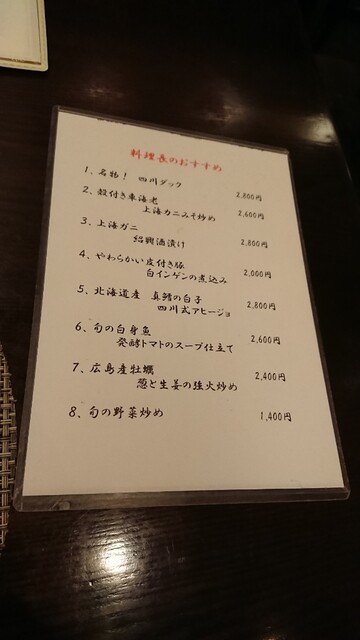 料理長のおすすめ
1、名物！ 四川ダック 2,800円
2、殻付き車海老
上海カニみそ炒め 2,600円
3、上海ガニ
紹興酒漬け 2,800円
4、やわらかい皮付き豚
白インゲンの煮込み 2,000円
5、北海道産 真鱈の白子
四川式アヒージョ 2,800円
6、旬の白身魚
発酵トマトのスープ仕立て 2,600円
7、広島産牡蠣
葱と生姜の強火炒め 2,400円
8、旬の野菜炒め 1,400円